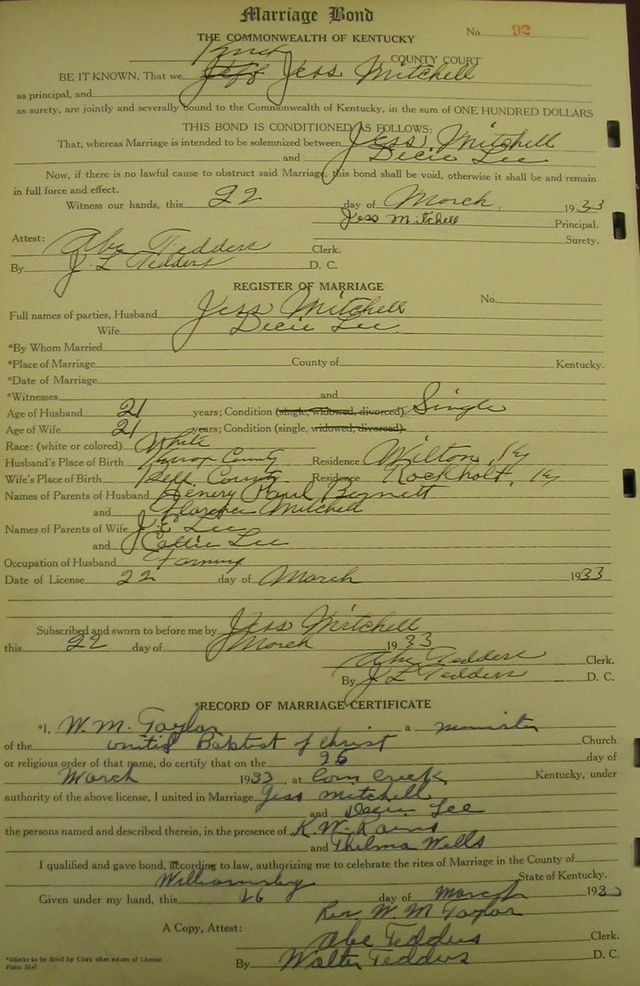 Marriage Bond
THE COMMONWEALTH OF KENTUCKY No. 92
Knox COUNTY COURT
BE IT KNOWN, That we Jeff Jess Mitchell
as principal, and
as surety, are jointly and severally bound to the Commonwealth of Kentucky, in the sum of ONE HUNDRED DOLLARS
THIS BOND IS CONDITIONED AS FOLLOWS:
That, whereas Marriage is intended to be solemnized between Jess Mitchell
and Decie Lee
Now, if there is no lawful cause to obstruct said Marriage, this bond shall be void, otherwise it shall be and remain
in full force and effect.
Witness our hands, this 22 day of March, 1933
Jess Mitchell Principal.
Surety.
Attest: Abe Tedders Clerk.
By J. L. Tedders D. C.
REGISTER OF MARRIAGE
No.
Full names of parties, Husband Jess Mitchell
Wife Decie Lee
*By Whom Married
*Place of Marriage County of Kentucky.
*Date of Marriage
*Witnesses and
Age of Husband 21 years; Condition (single, widowed, divorced) Single
Age of Wife 21 years; Condition (single, widowed, divorced)
Race: (white or colored) White
Husband's Place of Birth Knox County Residence Wilton, Ky
Wife's Place of Birth Bell County Residence Rockholt, Ky
Names of Parents of Husband Henery Paul Bennett
and Florence Mitchell
Names of Parents of Wife J. E. Lee
and Callie Lee
Occupation of Husband Farming
Date of License 22 day of March 1933
Subscribed and sworn to before me by Jess Mitchell
this 22 day of March 1933
Abe Tedders Clerk.
By J L Tedders D. C.
*RECORD OF MARRIAGE CERTIFICATE
*I, W. M. Taylor a minister
of the United Baptest of Christ Church
or religious order of that name, do certify that on the 26 day of
March 1933, at Corn Creek Kentucky, under
authority of the above license, I united in Marriage Jess Mitchell
and Lee
the persons named and described therein, in the presence of K. W.
and Thelma Wells
I qualified and gave bond, according to law, authorizing me to celebrate the rites of Marriage in the County of
Williamsburg State of Kentucky.
Given under my hand, this 26 day of March 1933
Rev. W. M Taylor
A Copy, Attest: Abe Tedders Clerk.
By Walter Tedders D. C.
*Blanks to be filled by Clerk after return of License